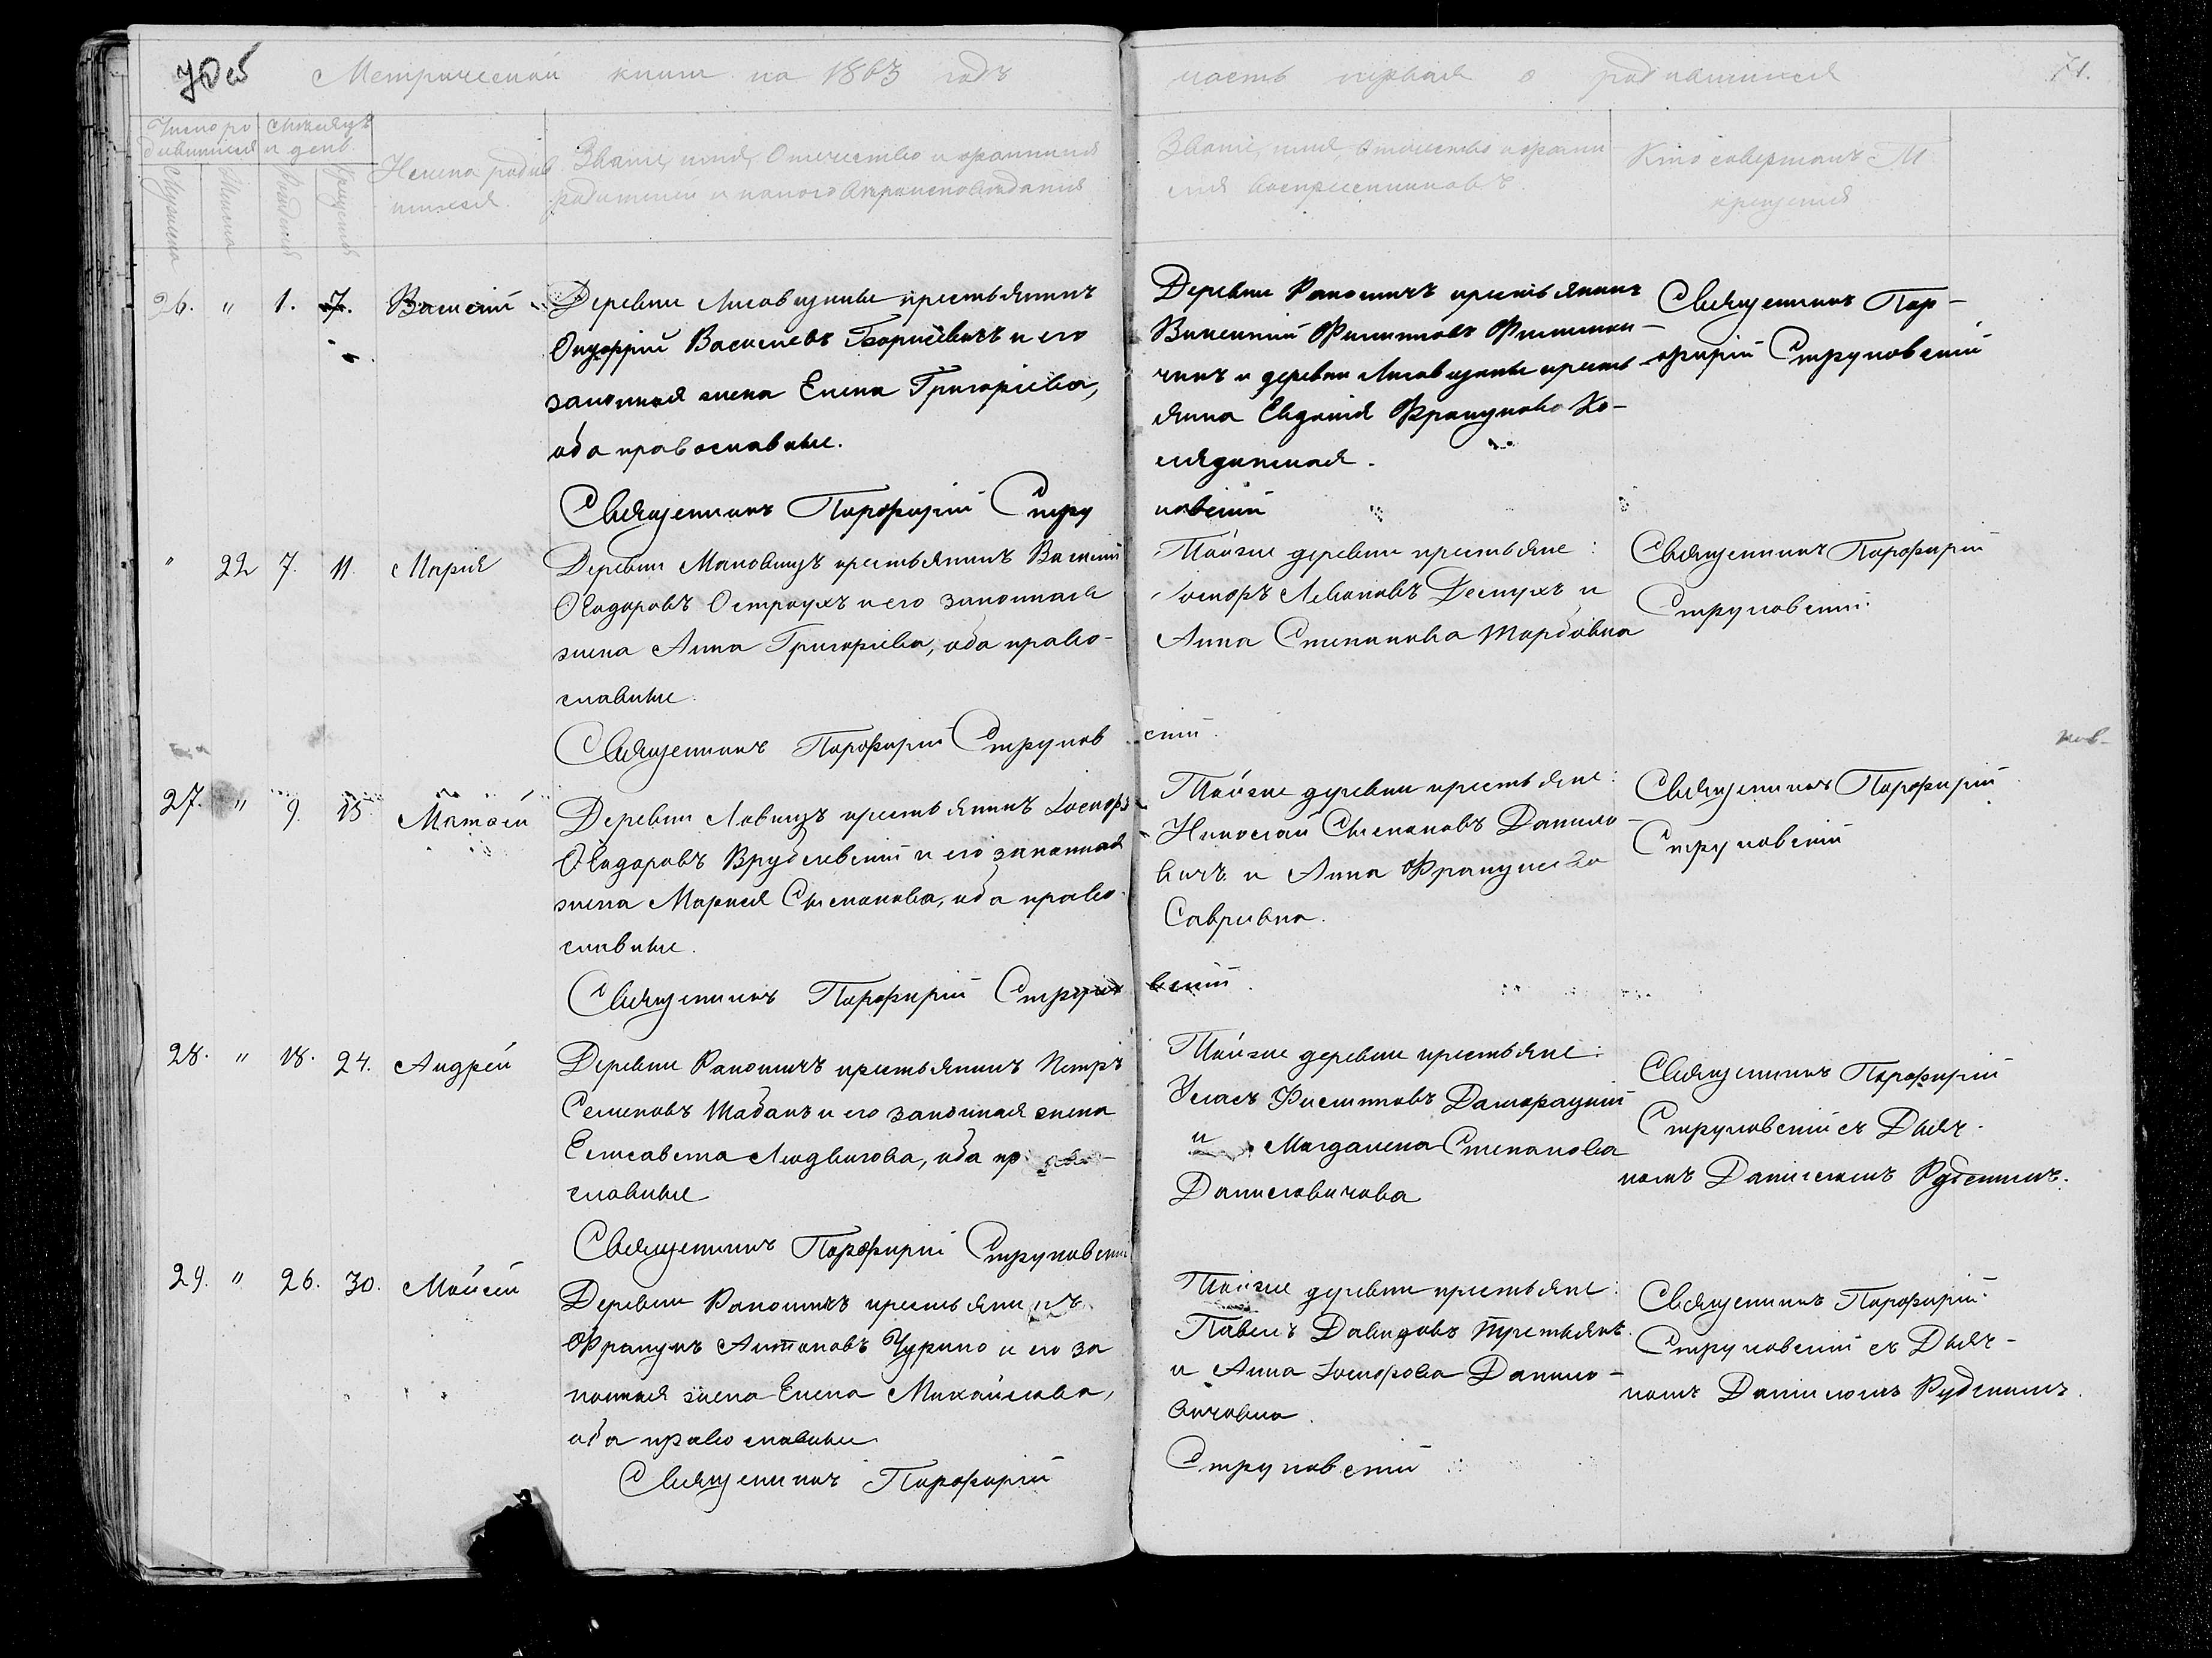 70 об
Метрической книги на 1863 годъ
часть первая о родившихся
71.
Число ро
дившихся
Мѣсяцъ
и день.
Мужеска
Женска
Рожденія
Крещенія
Имена родив
шихся.
Званіе, имя, Отечество и фамилія
родителей и какого вѣроисповѣданія
Званіе, имя, отчество и фами
лія воспріемниковъ.
Кто совершалъ
крещенія
26. " 1. 7. Василій
Деревни крестьянинъ
Онуфрій Васильевъ Борисевичъ и его
законная жена Елена Григоріева,
оба православные.
Священникъ Парфирій Стру
Деревни крестьянинъ
Викентій Филиповъ
чикъ и деревни крестьян
янка Евдокія Францукова Ко-
лядинская.
ковскій
Священникъ Пор-
фирій Струковскій
" 22 7. 11. Марія
Деревни крестьянинъ Василій
Ѳеодоровъ Остроухъ и его законная
жена Анна Григоріева, оба право-
славные.
Священникъ Порофирій Струков
Тойже деревни крестьяне:
Іосифъ Леоновъ и
Анна Степанова
скій.
Священникъ Порофирій
Струковскій.
27. " 9. 15 Матѳей
Деревни крестьянинъ Іосифъ
Ѳеодоровъ Врублевскій и его законная
жена Марія Степанова, оба право-
славные.
Священникъ Порофирій Струко
Тойже деревни крестьяне:
Николай Степановъ Данило-
вичъ и Анна
вскій.
Священникъ Порофирій
Струковскій
28. " 18. 24. Андрей
Деревни Ракошичъ крестьянинъ Петръ
Семеновъ Шабанъ и его законная жена
Елисавета Людвигова, оба право-
славные
Священникъ Порофирій Струковскій
Тойже деревни крестьяне:
Филиповъ
и Магдалена Степанова
Даниловичова
Священникъ Порофирій
Струковскій съ Дьяч-
комъ Даниломъ
29. " 26. 30. Мойсей
Деревни Ракошичъ крестьянинъ
Францукъ Антоновъ Чурило и его за
конная жена Елена Михайлова,
оба православные
Священникъ Порофирій
Тойже деревни крестьяне:
Павелъ Давидовъ Третьякъ
и Анна Іосифова Данило-
вичовна.
Струковскій
Священникъ Порофирій
Струковскій съ Дьяч-
комъ Даниломъ